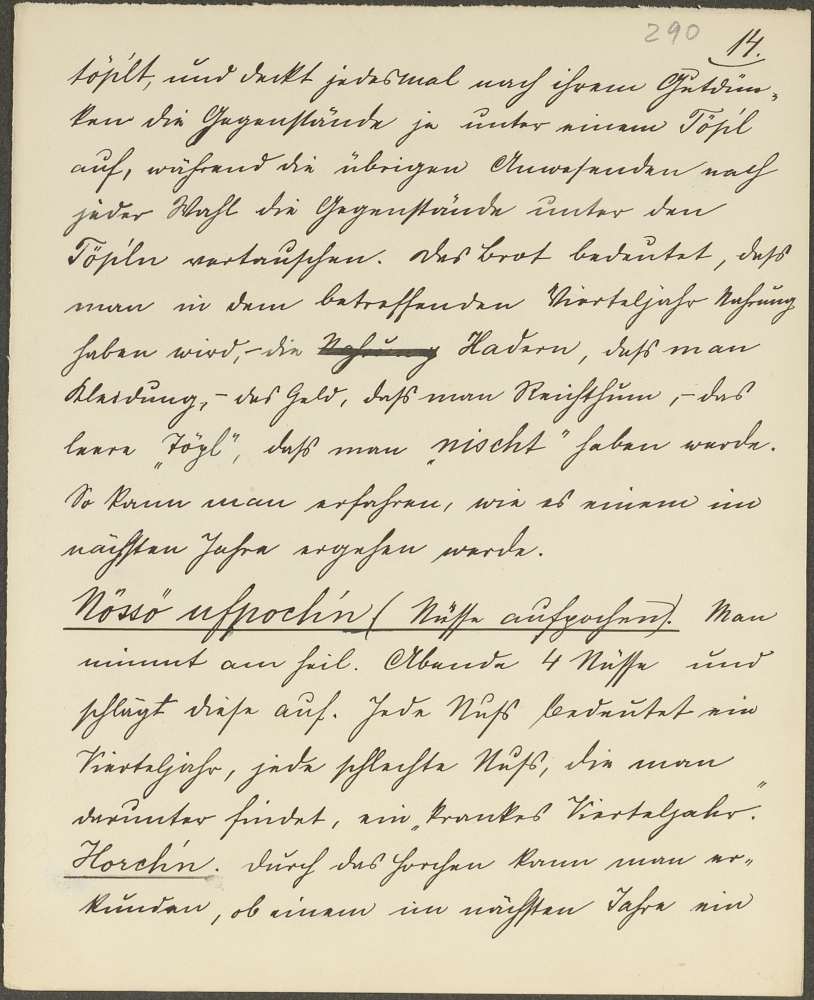 290
14.
töpilt, und deckt jedesmal nach ihrem Gutdün-
ken die Gegenstände je unter einem Töpil
auf, während die übrigen Anwesenden nach
jeder Wahl die Gegenstände unter den
Töpiln vertauschen. Das Brot bedeutet, dass
man in dem betreffenden Vierteljahr Nahrung
haben wird, – die Nahrung Hadern, dass man
Kleidung, – das Geld, dass man Reichthum, – das
leere „Töpl“, dass man „nischt“ haben werde.
So kann man erfahren, wie es einem im
nächsten Jahre ergehen werde.
Nössö ufpochin (Nüsse aufpochen). Man
nimmt am heil. Abende 4 Nüsse und
schlägt diese auf. Jede Nuss bedeutet ein
Vierteljahr, jede schlechte Nuss, die man
darunter findet, ein „krankes Vierteljahr.“
Horchin. Durch das Horchen kann man er-
kunden, ob einem im nächsten Jahre ein